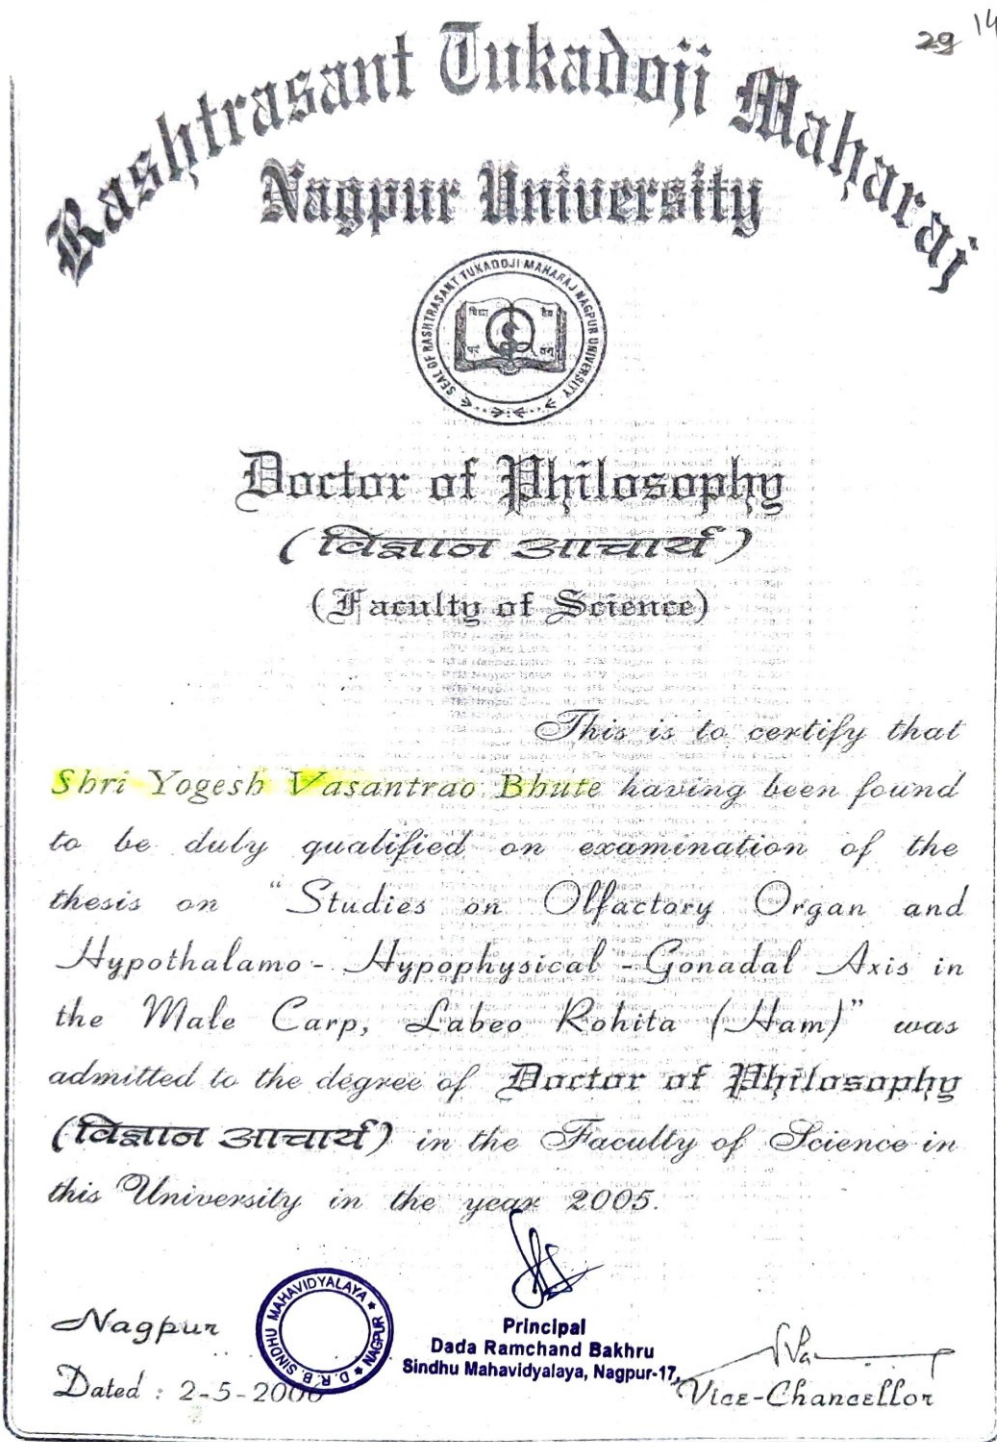 29 14
Rashtrasant Tukadoji Maharaj
Nagpur University
SEAL OF RASHTRASANT TUKADOJI MAHARAJ NAGPUR UNIVERSITY
Doctor of Philosophy
(विज्ञान आचार्य)
(Faculty of Science)
This is to certify that
Shri Yogesh Vasantrao Bhute having been found
to be duly qualified on examination of the
thesis on "Studies on Olfactory Organ and
Hypothalamo - Hypophysical - Gonadal Axis in
the Male Carp, Labeo Rohita (Ham)" was
admitted to the degree of Doctor of Philosophy
(विज्ञान आचार्य) in the Faculty of Science in
this University in the year 2005.
Nagpur
Dated : 2-5-2006
D.R.B. SINDHU MAHAVIDYALAYA ★ NAGPUR ★
Principal
Dada Ramchand Bakhru
Sindhu Mahavidyalaya, Nagpur-17.
Vice-Chancellor